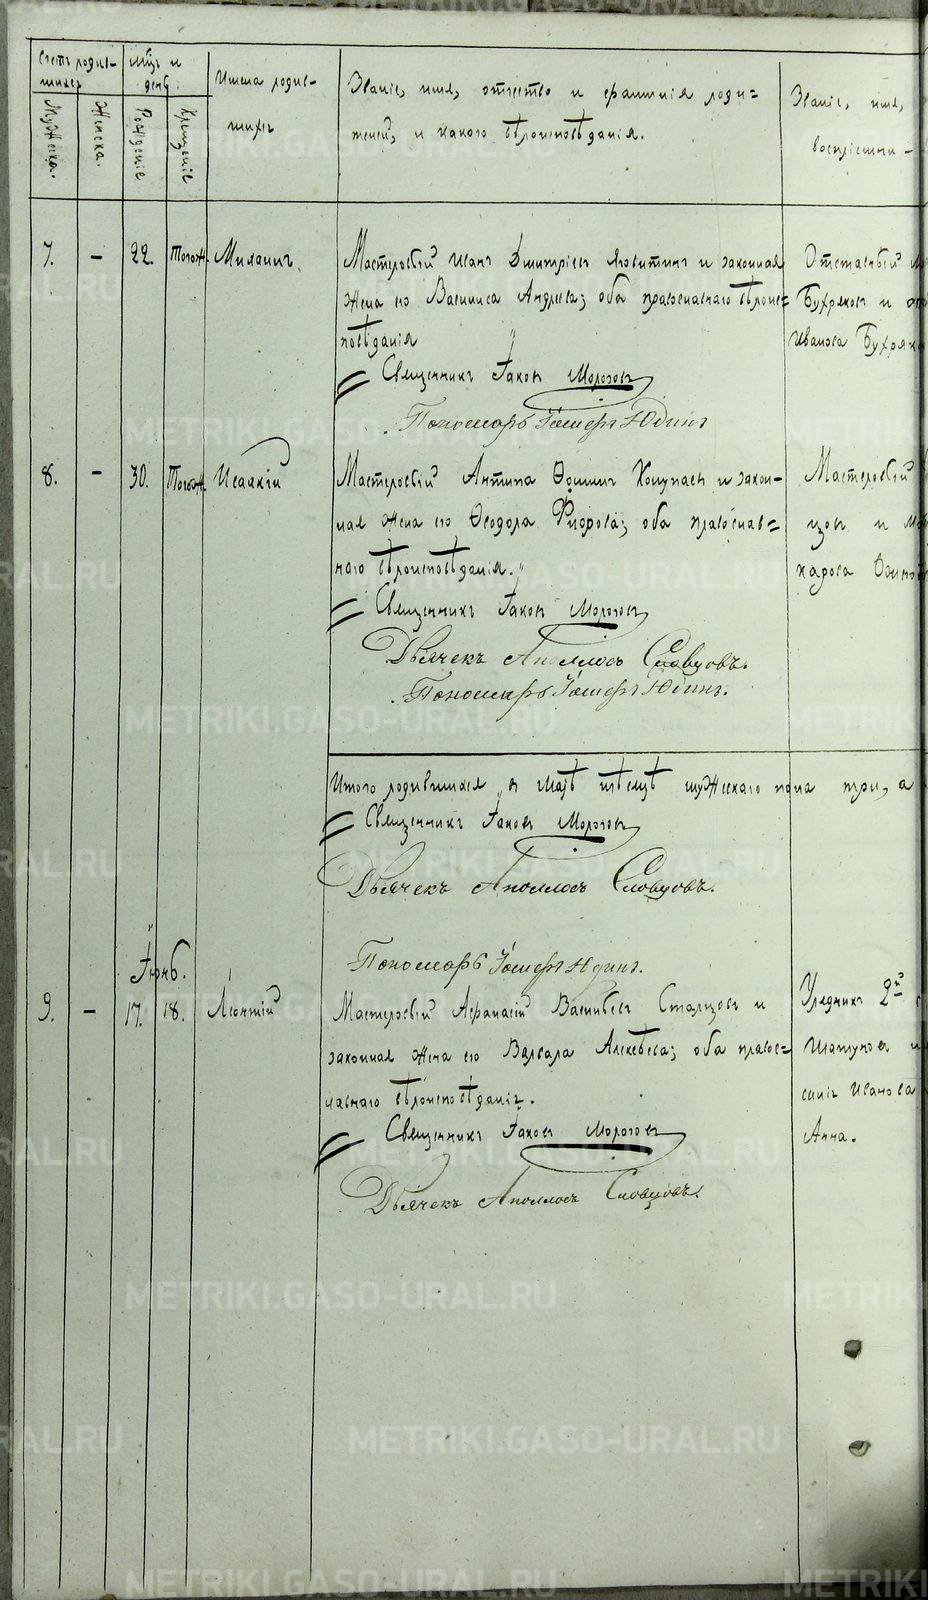 Счетъ родив-
шихся
Мужеска.
Женска.
Мѣсяцъ и
день
Рожденіе
Крещеніе
Имена родив-
шихся
Званіе, имя, отчество и фамилія роди=
телей, и какого вѣроисповѣданія.
Званіе, имя,
воспріемни-
7. - 22. Тогож. Михаилъ.
Мастеровый Иванъ Димитріевъ и законная
жена его Василиса Андреева; оба православнаго вѣроис=
повѣданія
Священникъ Іаковъ Мологовъ
Пономарь Юдинъ
Отставный
Бухряковъ и
Иванова Бухряко
8. - 30. Тогож. Исаакій
Мастеровый Антипа и закон-
ная жена его Ѳеодора; оба православ=
наго вѣроисповѣданія.
Священникъ Іаковъ Мологовъ
Дьячекъ Аполлосъ Словцовъ.
Пономарь Юдинъ.
Мастеровый
цовъ и
карова
Итого родившихся въ маѣ мѣсяцѣ мужескаго пола три, а
Священникъ Іаковъ Мологовъ
Дьячекъ Аполлосъ Словцовъ.
Пономарь Юдинъ.
Іюнь.
9. - 17. 18. Леонтій
Мастеровый Аѳанасій Васильевъ Старцовъ и
законная жена его Варвара Алексѣева; оба право=
славнаго вѣроисповѣданія.
Священникъ Іаковъ Мологовъ
Дьячекъ Аполлосъ Словцовъ.
Урядникъ 2й
Шатуновъ и
Иванова
Анна.
METRIKI.GASO-URAL.RU